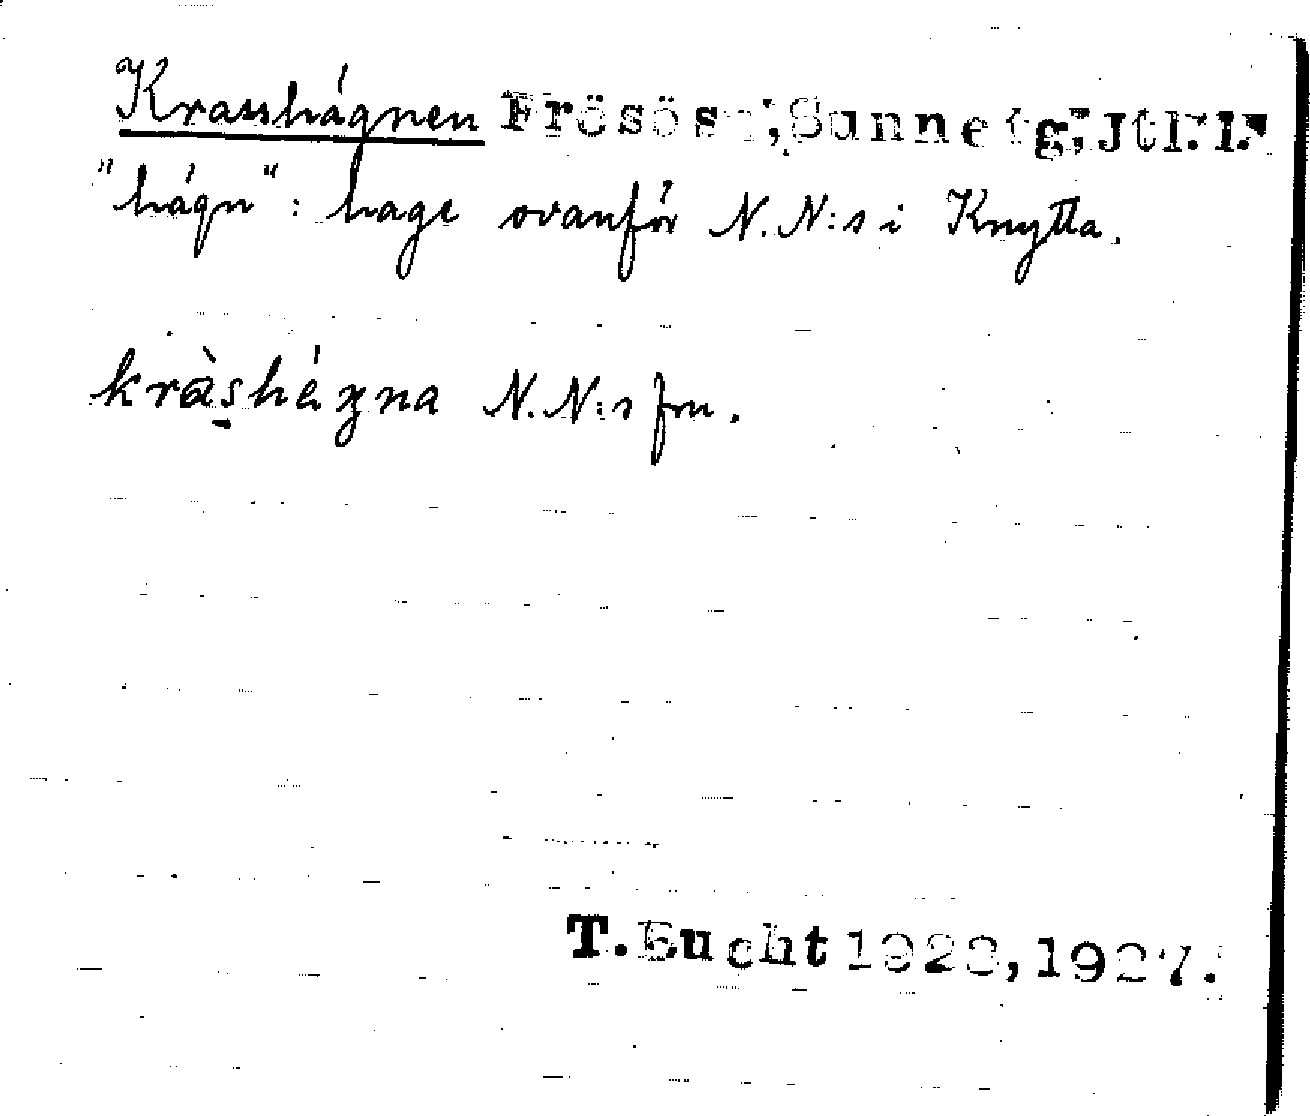 Krasshágnen Frösö sn, Sunne tg, Jtl. l.
"hágn": hage ovanför N.N:s i Knytta.
kràshégna N.N:s fm.
T. Bucht 1923, 1927.